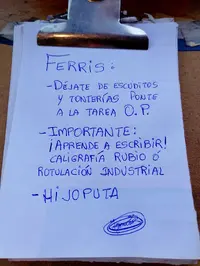 FERRIS:
-DÉJATE DE ESCUDITOS
Y TONTERÍAS PONTE
A LA TAREA O.P.
-IMPORTANTE:
¡APRENDE A ESCRIBIR!
CALIGRAFÍA RUBIO Ó
ROTULACIÓN INDUSTRIAL
-HIJOPUTA